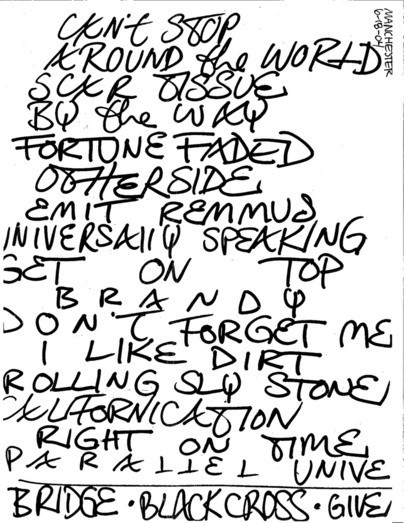 MANCHESTER
6-18-04
CAN'T STOP
AROUND the WORLD
SCAR TISSUE
BY the WAY
FORTUNE FADED
OTHERSIDE
EMIT REMMUS
UNIVERSALLY SPEAKING
GET ON TOP
BRANDY
DON'T FORGET ME
I LIKE DIRT
ROLLING SLY STONE
CALIFORNICATION
RIGHT ON TIME
PARALLEL UNIVE
BRIDGE · BLACKCROSS · GIVE